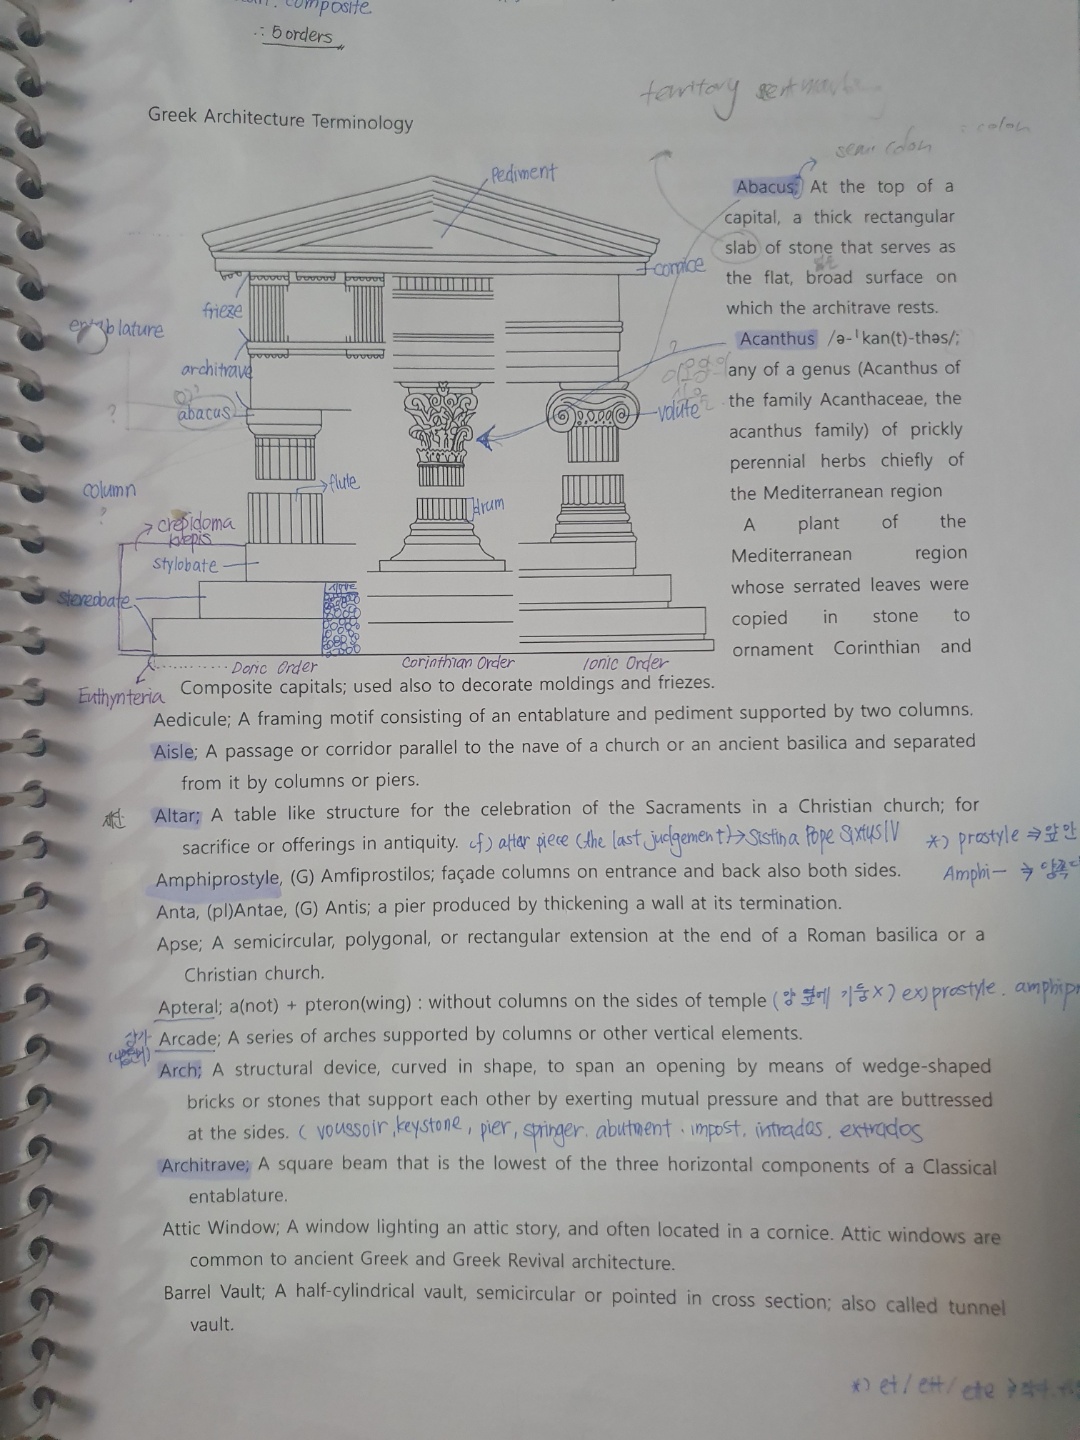 composite
∴ 5 orders
territory
Greek Architecture Terminology
: colon
semi colon
Pediment
cornice
frieze
entablature
architrave
abacus
volute
column
?
flute
drum
crepidoma
stylobate
stereobate
Doric Order
Corinthian Order
Ionic Order
Euthynteria
Abacus; At the top of a
capital, a thick rectangular
slab of stone that serves as
the flat, broad surface on
which the architrave rests.
Acanthus /ə-ˈkan(t)-thəs/;
any of a genus (Acanthus of
the family Acanthaceae, the
acanthus family) of prickly
perennial herbs chiefly of
the Mediterranean region
A plant of the
Mediterranean region
whose serrated leaves were
copied in stone to
ornament Corinthian and
Composite capitals; used also to decorate moldings and friezes.
Aedicule; A framing motif consisting of an entablature and pediment supported by two columns.
Aisle; A passage or corridor parallel to the nave of a church or an ancient basilica and separated
from it by columns or piers.
Altar; A table like structure for the celebration of the Sacraments in a Christian church; for
sacrifice or offerings in antiquity. cf) alter piece (the last judgement) → Sistina Pope Sixtus IV
*) prostyle ⇒ 앞만
Amphiprostyle, (G) Amfiprostilos; façade columns on entrance and back also both sides. Amphi- ⇒
Anta, (pl)Antae, (G) Antis; a pier produced by thickening a wall at its termination.
Apse; A semicircular, polygonal, or rectangular extension at the end of a Roman basilica or a
Christian church.
Apteral; a(not) + pteron(wing) : without columns on the sides of temple (양 옆에 기둥 X) ex) prostyle. amphipr
Arcade; A series of arches supported by columns or other vertical elements.
Arch; A structural device, curved in shape, to span an opening by means of wedge-shaped
bricks or stones that support each other by exerting mutual pressure and that are buttressed
at the sides. ( voussoir, keystone, pier, springer. abutment. impost. intrados. extrados
Architrave; A square beam that is the lowest of the three horizontal components of a Classical
entablature.
Attic Window; A window lighting an attic story, and often located in a cornice. Attic windows are
common to ancient Greek and Greek Revival architecture.
Barrel Vault; A half-cylindrical vault, semicircular or pointed in cross section; also called tunnel
vault.
*) et / ett / ete